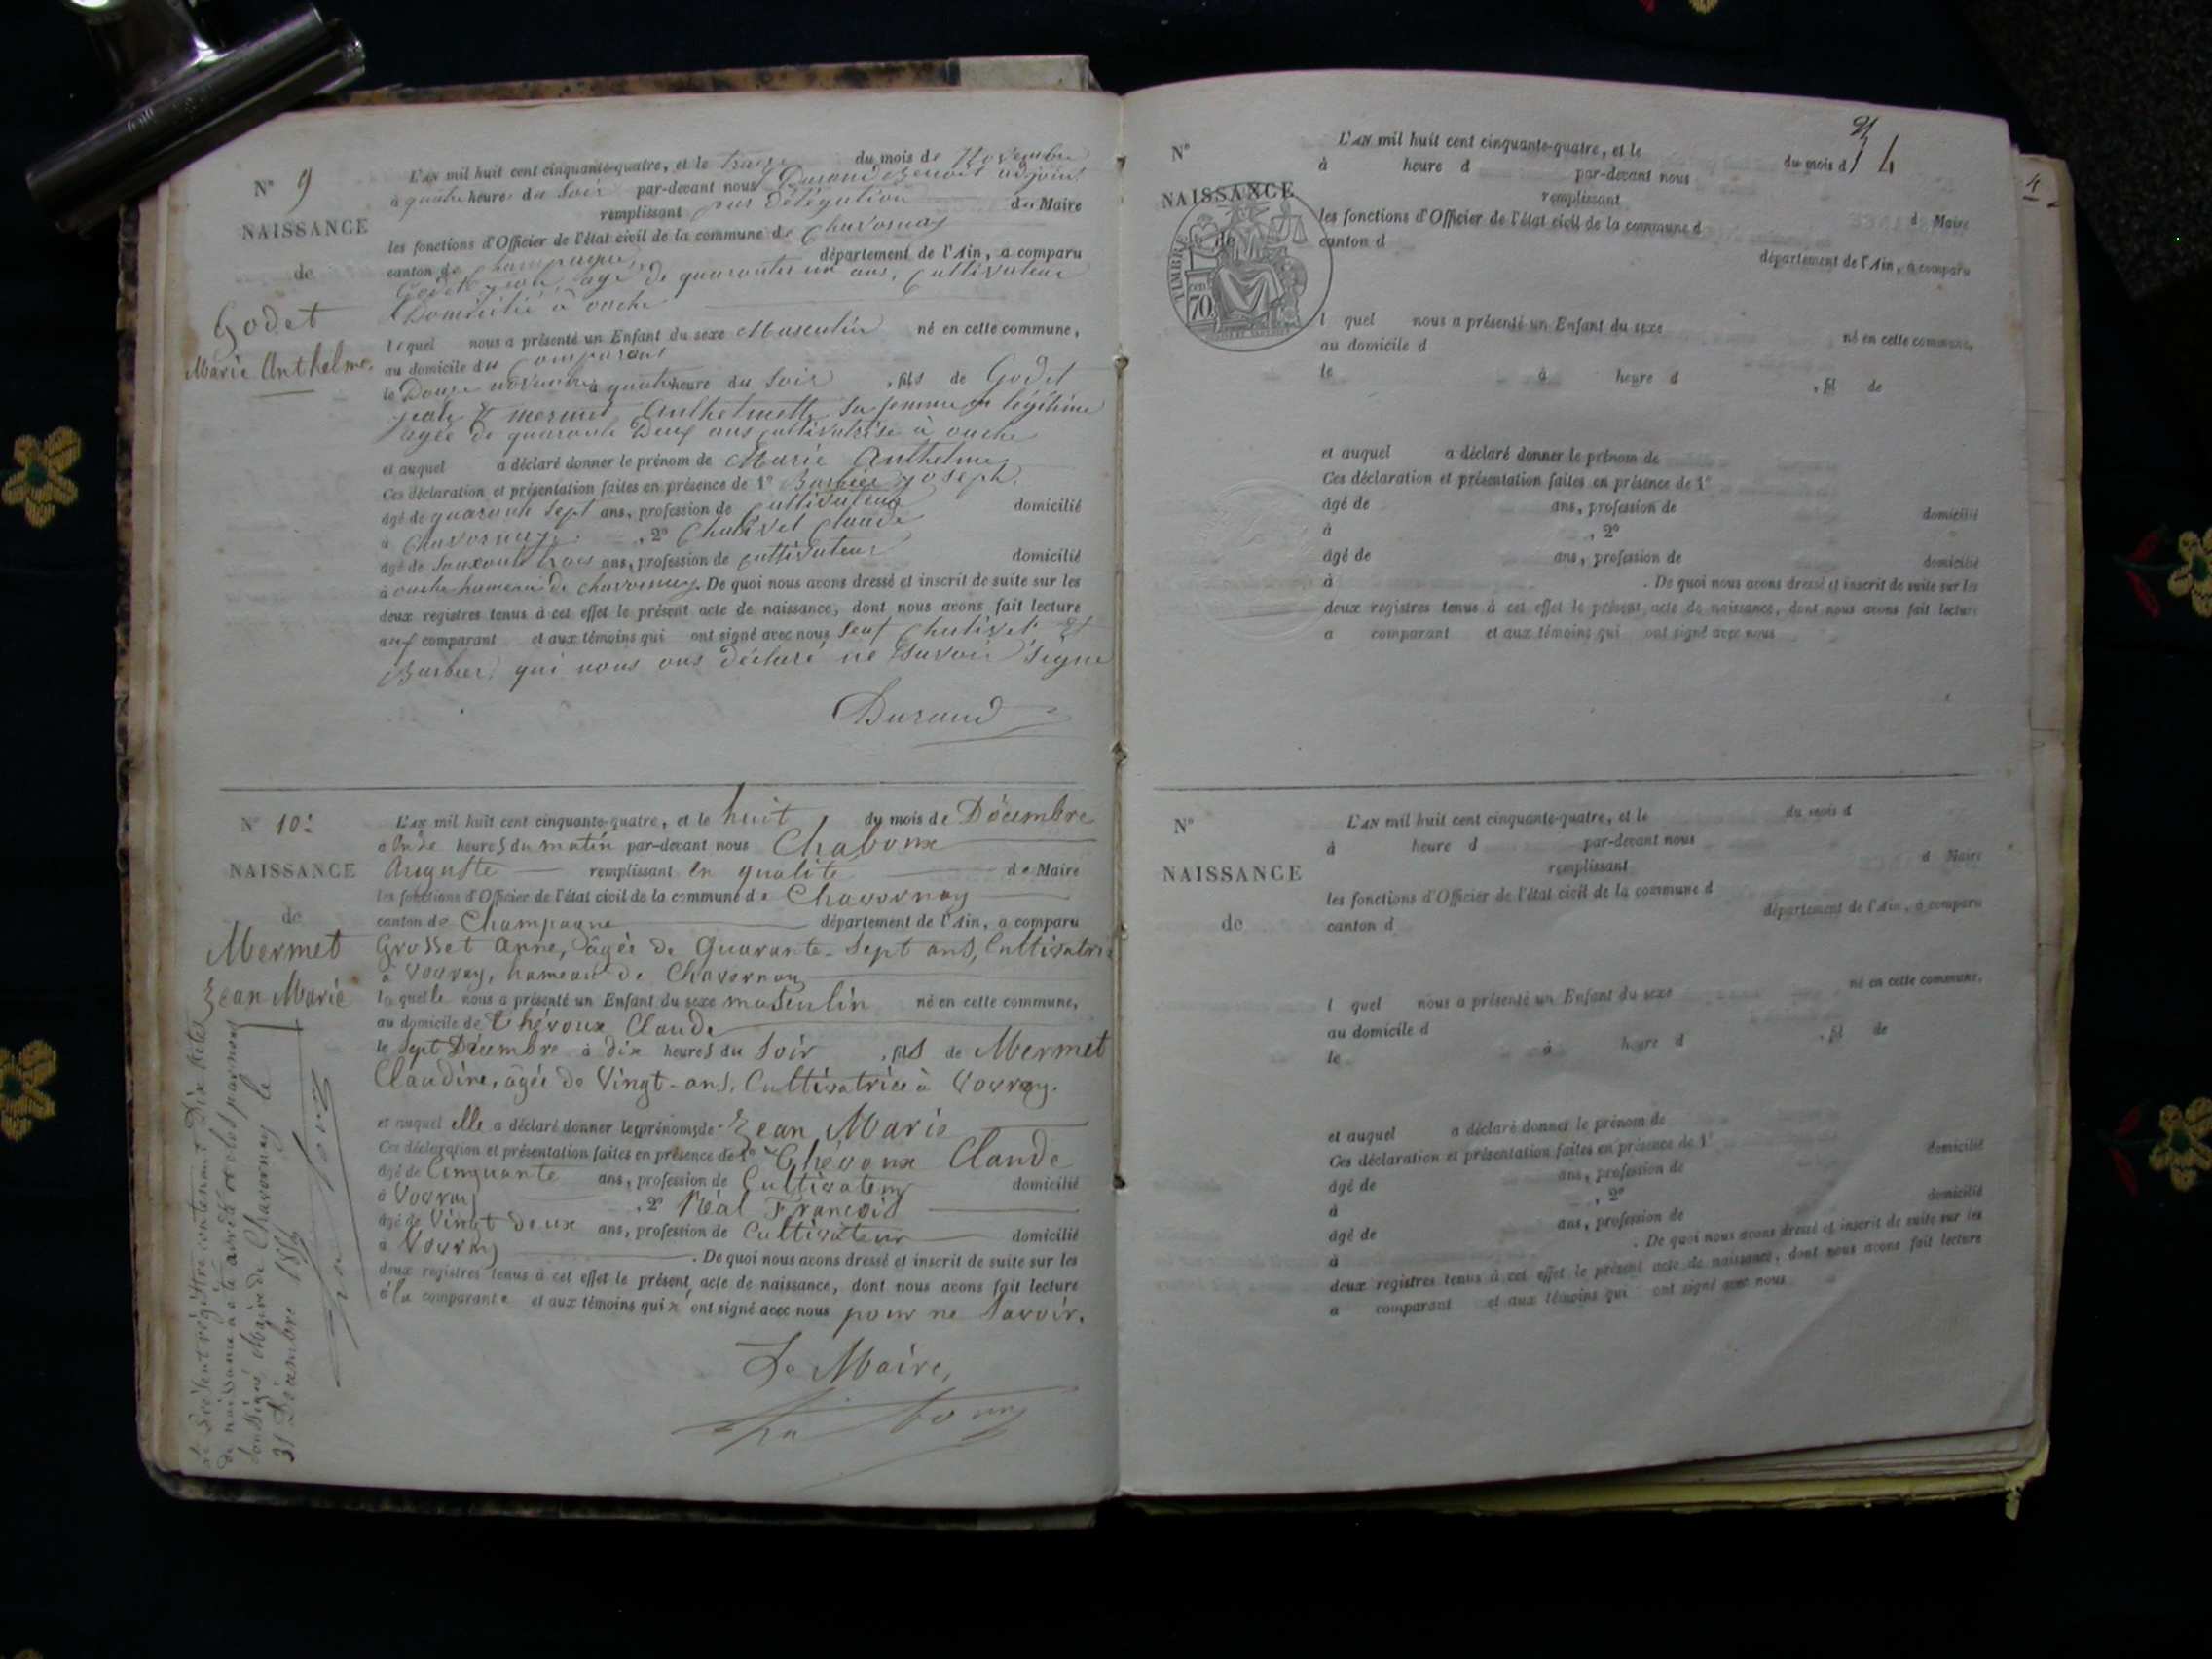 N° 9
NAISSANCE
de
Godet
Marie Anthelme.
L'AN mil huit cent cinquante-quatre, et le treize du mois de Novembre
à quatre heure du Soir par-devant nous Durand Benoit adjoint
remplissant par Délégation du Maire
les fonctions d'Officier de l'état civil de la commune de Chavornay
canton de Champagne, département de l'Ain, a comparu
Godet Jean, âgé de quarante un ans, Cultivateur
Domicilié à ouche
lequel nous a présenté un Enfant du sexe Masculin né en cette commune,
au domicile du Comparant
le Douze novembre à quatre heure du Soir, fils de Godet
Jean et mermet Anthelmette Sa femme en légitime
agée de quarante Deux ans cultivatrise à ouche
et auquel a déclaré donner le prénom de Marie Anthelme
Ces déclaration et présentation faites en présence de 1° Barbier Joseph.
âgé de quarante Sept ans, profession de Cultivateur domicilié
à Chavornay. , 2° Chalivet Claude
âgé de Soixante trois ans, profession de Cultivateur domicilié
à ouche hameau de chavornay. De quoi nous avons dressé et inscrit de suite sur les
deux registres tenus à cet effet le présent acte de naissance, dont nous avons fait lecture
aux comparant et aux témoins qui ont signé avec nous Seuf Chalivet et
Barbier, qui nous ons déclaré ne Savoir Signe
Durand
N° 10:
NAISSANCE
de
Mermet
Jean Marie
L'AN mil huit cent cinquante-quatre, et le huit du mois de Décembre
à Onze heures du matin par-devant nous Chaboux
Auguste remplissant en qualite de Maire
les fonctions d'Officier de l'état civil de la commune de Chavornay
canton de Champagne département de l'Ain, a comparu
Grosset Anne, âgée de Quarante-Sept ans, Cultivatrice
à Vovray, hameau de Chavornay
laquelle nous a présenté un Enfant du sexe masculin né en cette commune,
au domicile de Thévoux Claude
le Sept Décembre à dix heures du Soir, fils de Mermet
Claudine, âgée de Vingt-ans, Cultivatrice à Vovray.
et auquel elle a déclaré donner les prénoms de Jean Marie
Ces déclaration et présentation faites en présence de 1° Thevoux Claude
âgé de Cinquante ans, profession de Cultivateur domicilié
à Vovray , 2° Réal François
âgé de Vingt deux ans, profession de Cultivateur domicilié
à Vovray . De quoi nous avons dressé et inscrit de suite sur les
deux registres tenus à cet effet le présent acte de naissance, dont nous avons fait lecture
à la comparante et aux témoins qui n'ont signé avec nous pour ne Savoir.
Le Maire,
Chaboux
Le présent régistre contenant Dix actes
de naissance a été arrêté et clos par nous
Soussigné, Maire de Chavornay le
31 Décembre 1854
Chaboux
4
N°
NAISSANCE
de
TIMBRE
70
L'AN mil huit cent cinquante-quatre, et le du mois d
à heure d par-devant nous
remplissant d Maire
les fonctions d'Officier de l'état civil de la commune d
canton d département de l'Ain, a comparu
l quel nous a présenté un Enfant du sexe né en cette commune,
au domicile d
le à heure d , fil de
et auquel a déclaré donner le prénom de
Ces déclaration et présentation faites en présence de 1°
âgé de ans, profession de domicilié
à , 2°
âgé de ans, profession de domicilié
à . De quoi nous avons dressé et inscrit de suite sur les
deux registres tenus à cet effet le présent acte de naissance, dont nous avons fait lecture
a comparant et aux témoins qui ont signé avec nous
N°
NAISSANCE
de
L'AN mil huit cent cinquante-quatre, et le du mois d
à heure d par-devant nous
remplissant d Maire
les fonctions d'Officier de l'état civil de la commune d
canton d département de l'Ain, a comparu
l quel nous a présenté un Enfant du sexe né en cette commune,
au domicile d
le à heure d , fil de
et auquel a déclaré donner le prénom de
Ces déclaration et présentation faites en présence de 1°
âgé de ans, profession de domicilié
à , 2°
âgé de ans, profession de domicilié
à . De quoi nous avons dressé et inscrit de suite sur les
deux registres tenus à cet effet le présent acte de naissance, dont nous avons fait lecture
a comparant et aux témoins qui ont signé avec nous
4